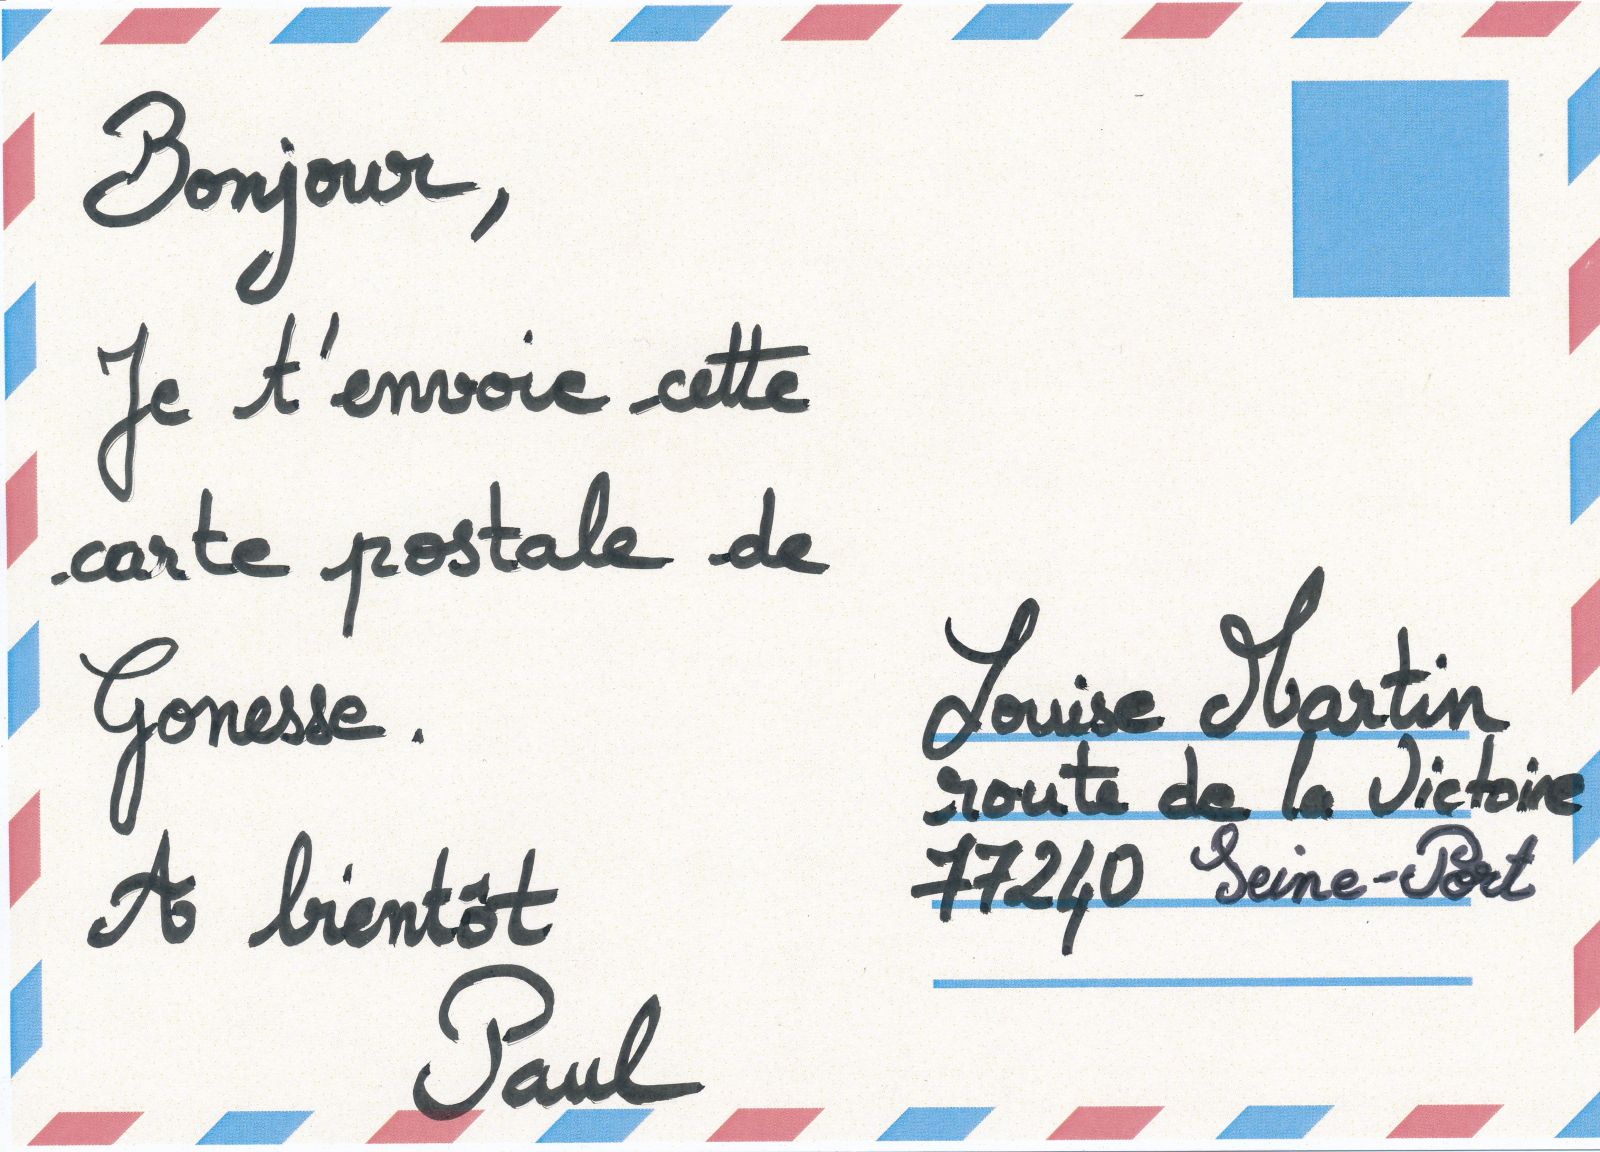 Bonjour,
Je t'envoie cette
carte postale de
Gonesse.
A bientôt
Paul
Louise Martin
route de la Victoire
77240 Seine-Port